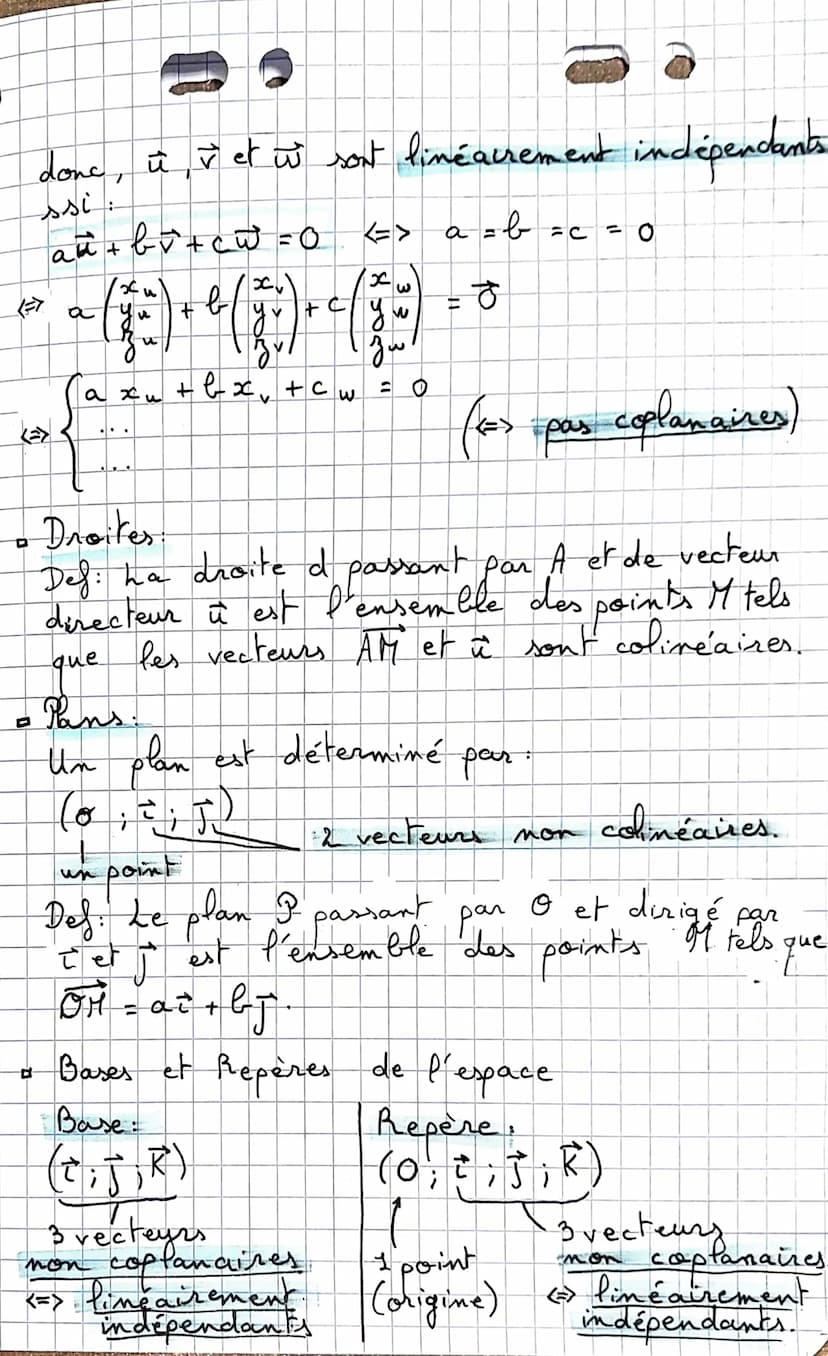 donc, u⃗, v⃗ et w⃗ sont linéairement indépendants
ssi :
au⃗ + bv⃗ + cw⃗ = 0 <=> a = b = c = 0
<=> a (x_u y_u z_u) + b (x_v y_v z_v) + c (x_w y_w z_w) = 0⃗
<=> { a x_u + b x_v + c_w = 0
...
...
(<=> pas coplanaires)
▫ Droites :
Def : La droite d passant par A et de vecteur
directeur u⃗ est l'ensemble des points M tels
que les vecteurs AM⃗ et u⃗ sont colinéaires.
▫ Plans :
Un plan est déterminé par :
(O ; i⃗ ; j⃗)
2 vecteurs non colinéaires.
un point
Def : Le plan P passant par O et dirigé par
i⃗ et j⃗ est l'ensemble des points M tels que
OM⃗ = ai⃗ + bj⃗.
▫ Bases et Repères de l'espace
Base :
(i⃗ ; j⃗ ; k⃗)
3 vecteurs
non coplanaires
<=> linéairement
indépendants
Repère :
(O ; i⃗ ; j⃗ ; k⃗)
1 point
(origine)
3 vecteurs
non coplanaires
<=> linéairement
indépendants.